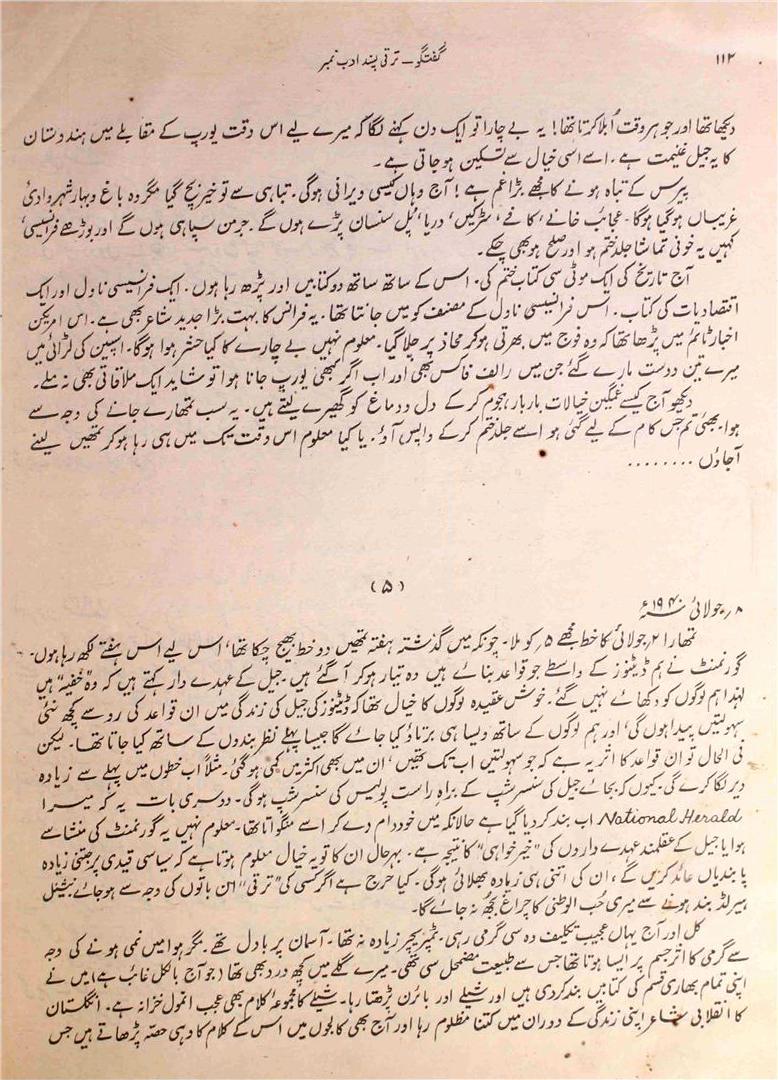 ۱۱۲
گفتگو ۔ ترقی پسند ادب نمبر
دیکھا تھا اور جو ہر وقت اُبلا کرتا تھا! یہ بے چارا تو ایک دن کہنے لگا کہ میرے لیے اس وقت یورپ کے مقابلے میں ہندوستان
کا یہ جیل غنیمت ہے۔ اسے اسی خیال سے تسکین ہو جاتی ہے۔
پیرس کے تباہ ہونے کا مجھے بڑا غم ہے! آج وہاں کیسی ویرانی ہوگی۔ تباہی سے تو خیر بچ گیا مگر وہ باغ و بہار شہر وادیٔ
غریباں ہو گیا ہوگا۔ عجائب خانے، کافے، سڑکیں، دریا، پُل سنسان پڑے ہوں گے۔ جرمن سپاہی ہوں گے اور بوڑھے فرانسیسی،
کہیں یہ خونی تماشا جلد ختم ہو اور صلح ہو بھی چکے۔
آج تاریخ کی ایک موٹی سی کتاب ختم کی۔ اس کے ساتھ ساتھ دو کتابیں اور پڑھ رہا ہوں۔ ایک فرانسیسی ناول اور ایک
اقتصادیات کی کتاب۔ اس فرانسیسی ناول کے مصنف کو میں جانتا تھا۔ یہ فرانس کا بہت بڑا جدید شاعر بھی ہے۔ اس امریکن
اخبار ٹائم میں پڑھا تھا کہ وہ فوج میں بھرتی ہو کر محاذ پر چلا گیا۔ معلوم نہیں بے چارے کا کیا حشر ہوا ہوگا۔ اسپین کی لڑائی میں
میرے تین دوست مارے گئے جن میں رالف فاکس بھی اور اب اگر کبھی یورپ جانا ہوا تو شاید ایک ملاقاتی بھی نہ ملے۔
دیکھو آج کیسے غمگین خیالات بار بار ہجوم کر کے دل و دماغ کو گھیرے لیتے ہیں۔ یہ سب تمھارے جانے کی وجہ سے
ہوا۔ بھئی تم جس کام کے لیے گئی ہو اسے جلد ختم کر کے واپس آؤ۔ یا کیا معلوم اس وقت تک میں ہی رہا ہو کر تمھیں لینے
آجاؤں ........
(۵)
۸؍ جولائی ۱۹۴۰ء
تمھارا ۲؍ جولائی کا خط مجھے ۵؍ کو ملا۔ چونکہ میں گذشتہ ہفتہ تمھیں دو خط بھیج چکا تھا، اس لیے اس ہفتے لکھ رہا ہوں۔
گورنمنٹ نے ہم ڈیٹنوز کے واسطے جو قواعد بنائے ہیں وہ تیار ہو کر آ گئے ہیں۔ جیل کے عہدے دار کہتے ہیں کہ وہ "خفیہ" ہیں
لہٰذا ہم لوگوں کو دکھائے نہیں گئے۔ خوش عقیدہ لوگوں کا خیال تھا کہ ڈیٹنوز کی جیل کی زندگی میں ان قواعد کی رو سے کچھ نئی
سہولتیں پیدا ہوں گی، اور ہم لوگوں کے ساتھ ویسا ہی برتاؤ کیا جائے گا جیسا پہلے نظر بندوں کے ساتھ کیا جاتا تھا۔ لیکن
فی الحال تو ان قواعد کا اثر یہ ہے کہ جو سہولتیں اب تک تھیں، ان میں بھی اکثر میں کمی ہو گئی۔ مثلاً اب خطوں میں پہلے سے زیادہ
دیر لگا کرے گی۔ کیوں کہ بجائے جیل کی سنسر شپ کے براہِ راست پولیس کی سنسر شپ ہوگی۔ دوسری بات یہ کہ میرا
National Herald اب بند کر دیا گیا ہے حالانکہ میں خود دام دے کر اسے منگواتا تھا۔ معلوم نہیں یہ گورنمنٹ کی منشا سے
ہوا یا جیل کے عقلمند عہدے داروں کی "خیر خواہی" کا نتیجہ ہے۔ بہرحال ان کا تو یہ خیال معلوم ہوتا ہے کہ سیاسی قیدی پر جتنی زیادہ
پابندیاں عائد کریں گے، ان کی اتنی ہی زیادہ بھلائی ہوگی۔ کیا حرج ہے اگر کسی کی "ترقی" ان باتوں کی وجہ سے ہو جائے نیشنل
ہیرلڈ بند ہونے سے میری حُب الوطنی کا چراغ بجھ نہ جائے گا۔
کل اور آج یہاں عجیب تکلیف دہ سی گرمی رہی۔ ٹمپریچر زیادہ نہ تھا۔ آسمان پر بادل تھے مگر ہوا میں نمی ہونے کی وجہ
سے گرمی کا اثر جسم پر ایسا ہوتا تھا جس سے طبیعت مضمحل سی تھی۔ میرے گلے میں کچھ درد بھی تھا (جو آج بالکل غائب ہے) میں نے
اپنی تمام بھاری قسم کی کتابیں بند کر دی ہیں اور شیلے اور بائرن پڑھتا رہا۔ شیلے کا مجموعۂ کلام بھی عجب انمول خزانہ ہے۔ انگلستان
کا انقلابی شاعر اپنی زندگی کے دوران میں کتنا مظلوم رہا اور آج بھی کالجوں میں اس کے کلام کا وہی حصہ پڑھاتے ہیں جس